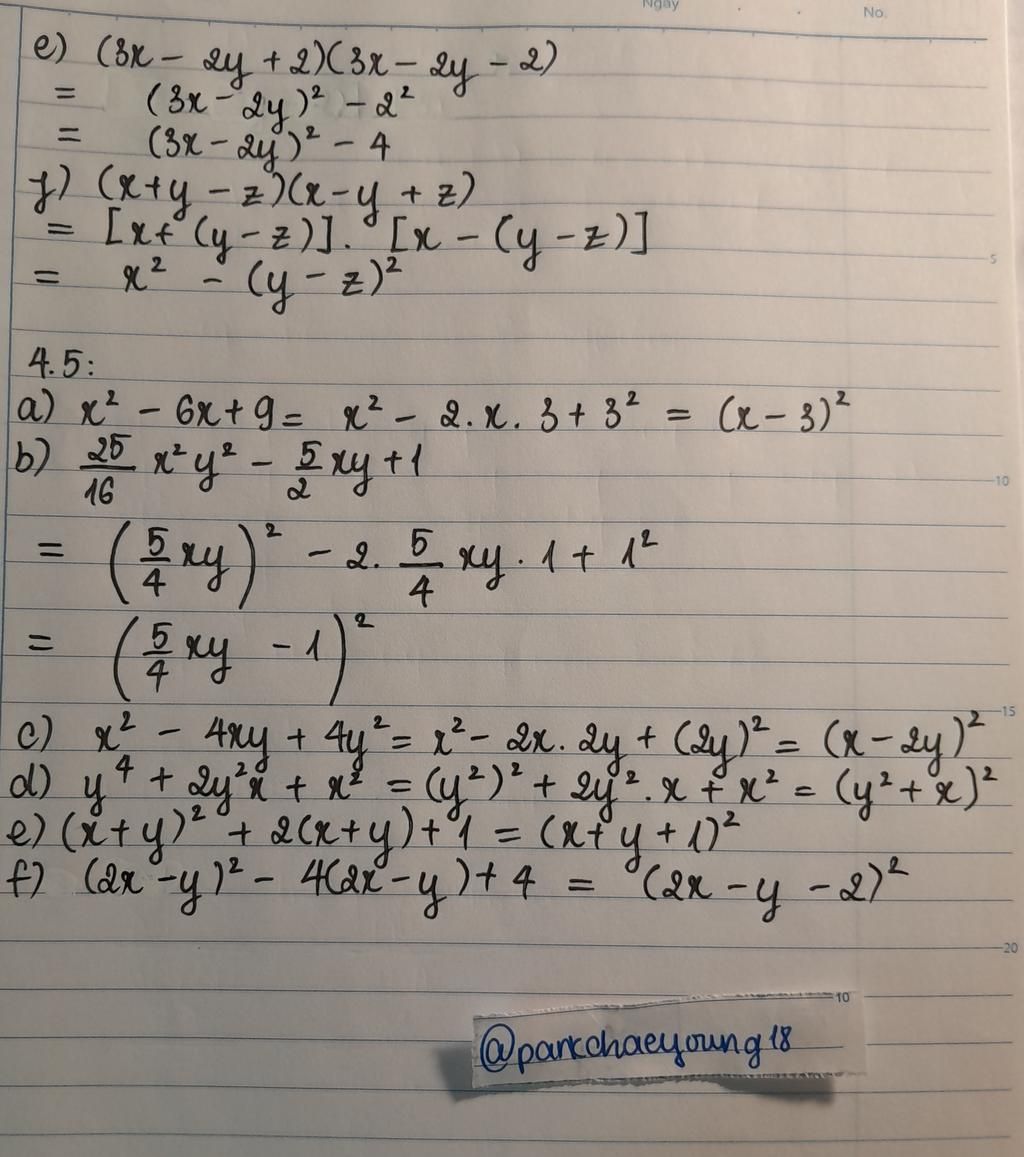 Ngày
No.
e) (3x - 2y + 2)(3x - 2y - 2)
= (3x - 2y)² - 2²
= (3x - 2y)² - 4
f) (x+y - z)(x-y + z)
= [x+ (y-z)]. [x - (y-z)]
= x² - (y - z)²
5
4.5:
a) x² - 6x + 9 = x² - 2.x. 3 + 3² = (x - 3)²
b) 25/16 x²y² - 5/2 xy + 1
10
= (5/4 xy)² - 2. 5/4 xy . 1 + 1²
= (5/4 xy - 1)²
15
c) x² - 4xy + 4y² = x² - 2x. 2y + (2y)² = (x - 2y)²
d) y⁴ + 2y²x + x² = (y²)² + 2y².x + x² = (y² + x)²
e) (x+y)² + 2(x+y) + 1 = (x+y+1)²
f) (2x-y)² - 4(2x-y) + 4 = (2x - y - 2)²
20
10
@parkchaeyoung18